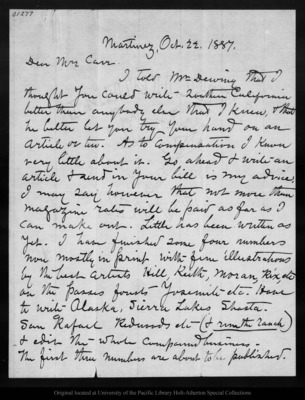 01277
Martinez, Oct. 22. 1887.
Dear Mrs Carr
I told Mr Dewing that I
thought you could write Southern California
better than anybody else that I knew, & that
he better let you try your hand on an
Article or two. As to Compensation I know
very little about it. Go ahead & write an
article & send in your bill is my advice
I may say however that not more than
magazine rates will be paid as far as I
can make out. Little has been written as
yet. I have finished some four numbers
now mostly in print with fine illustrations
by the best Artists Hill, Keith, Moran, Rix, etc
on the Passes forests Yosemite etc. Have
to write Alaska, Sierra Lakes Shasta.
San Rafael Redwoods etc (& ranch)
& edit the whole Compound business.
The first three numbers are about to be published.
Original located at University of the Pacific Library Holt-Atherton Special Collections